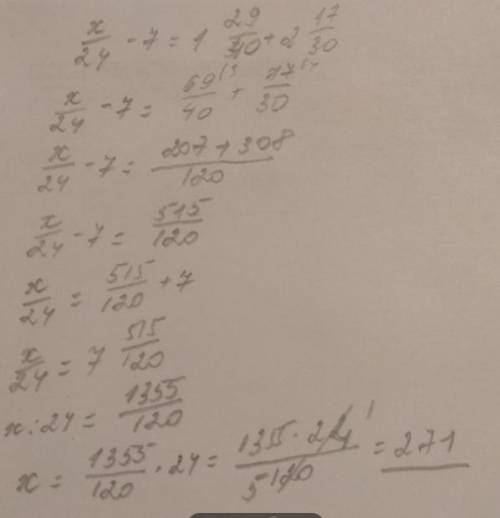 x/24 - 7 = 1 29/40 + 2 17/30
x/24 - 7 = 69/40 + 77/30
x/24 - 7 = 207 + 308/120
x/24 - 7 = 515/120
x/24 = 515/120 + 7
x/24 = 7 515/120
x : 24 = 1355/120
x = 1355/120 · 24 = 1355 · 24 1/5 120 = 271